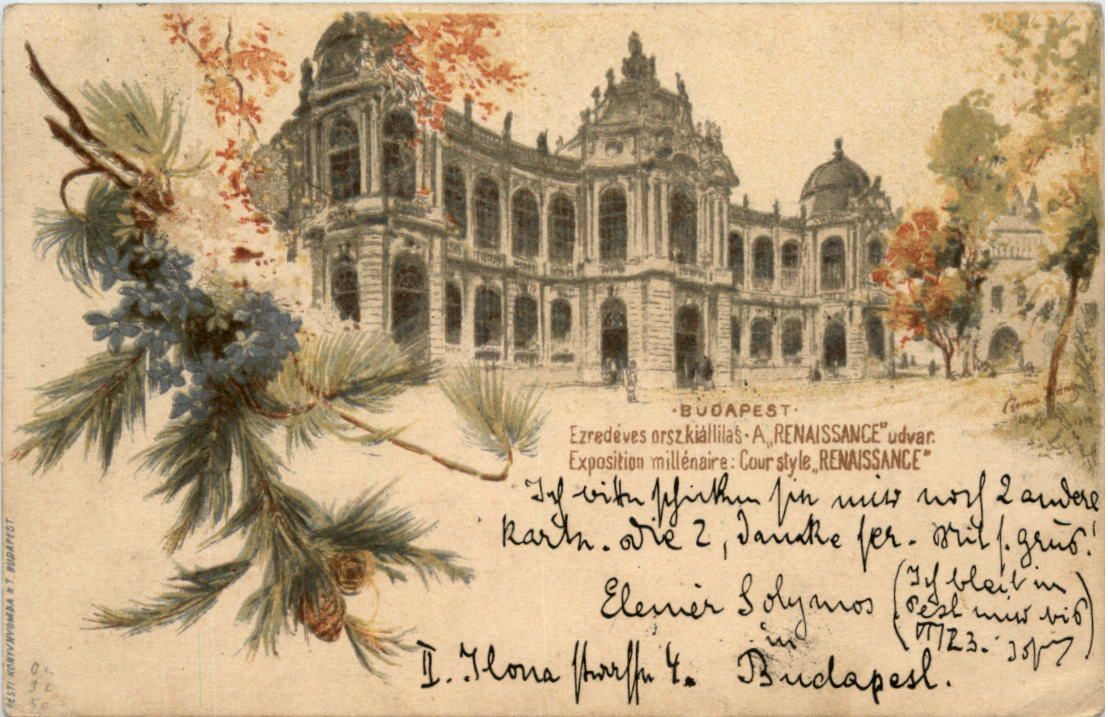 ·BUDAPEST·
Ezredéves orsz.kiállilás·A„RENAISSANCE"udvar.
Exposition millénaire: Cour style„RENAISSANCE"
Ich bitte schicken sie mir noch 2 andere
karten. die 2, danke ser. Mit f. grüs!
Elemér Solymos
(Ich bleib in
Pest nur bis
in
II. Ilona strasse 4. Budapest.
PESTI KÖNYVNYOMDA R.T. BUDAPEST